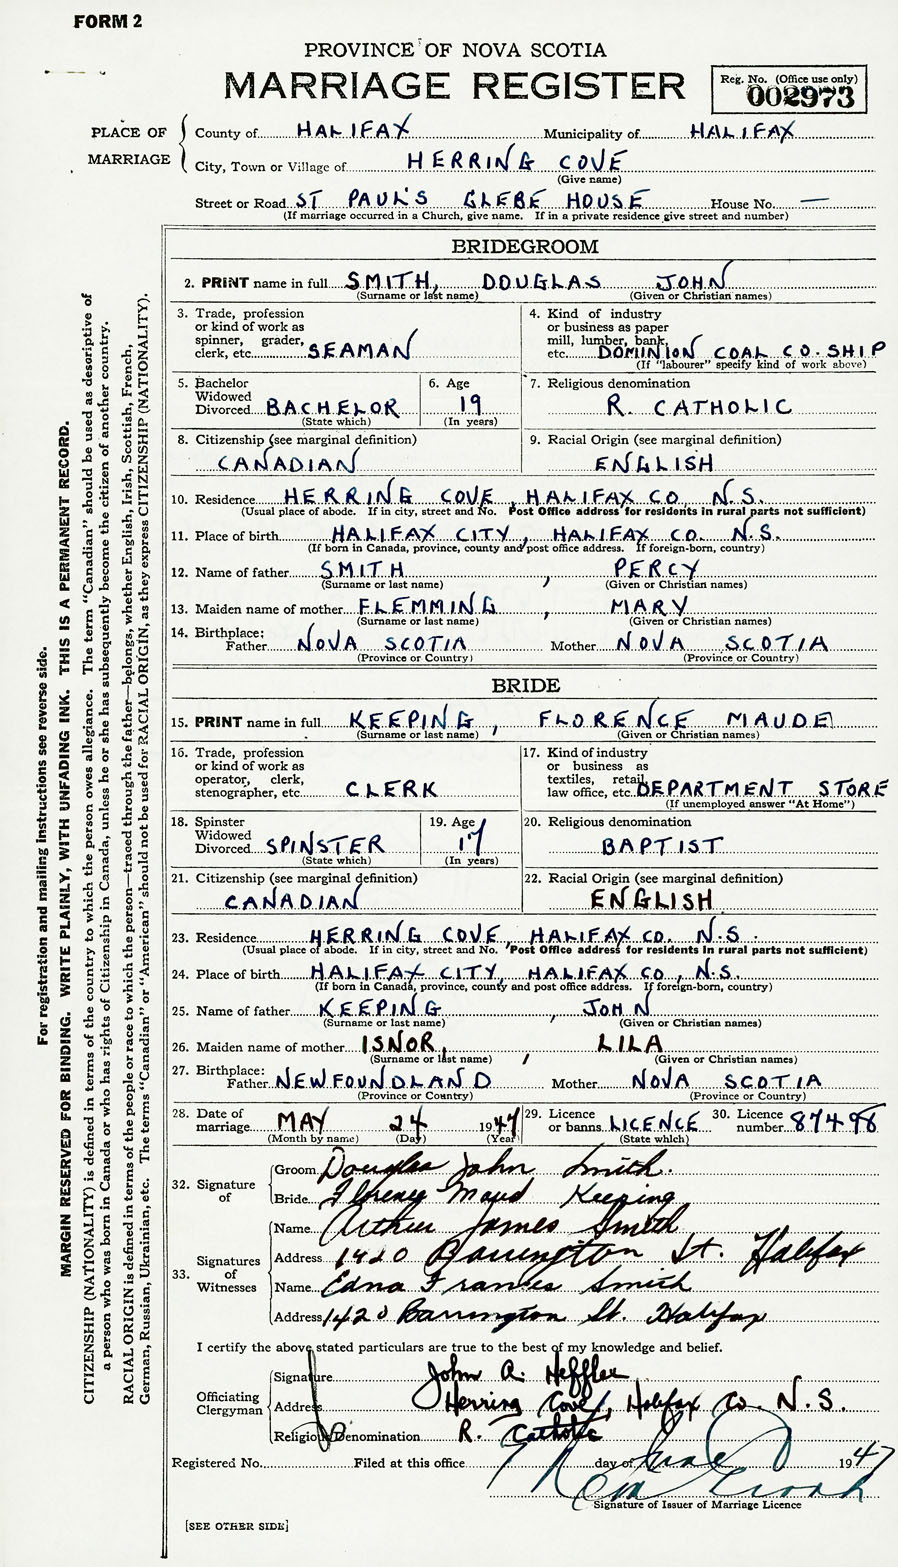 FORM 2
PROVINCE OF NOVA SCOTIA
MARRIAGE REGISTER
Reg. No. (Office use only)
002973
PLACE OF MARRIAGE
County of HALIFAX Municipality of HALIFAX
City, Town or Village of HERRING COVE
(Give name)
Street or Road ST PAUL'S GLEBE HOUSE House No. —
(If marriage occurred in a Church, give name. If in a private residence give street and number)
BRIDEGROOM
2. PRINT name in full SMITH, DOUGLAS JOHN
(Surname or last name) (Given or Christian names)
3. Trade, profession
or kind of work as
spinner, grader,
clerk, etc. SEAMAN
4. Kind of industry
or business as paper
mill, lumber, bank,
etc. DOMINION COAL CO. SHIP
(If "labourer" specify kind of work above)
5. Bachelor
Widowed
Divorced BACHELOR
(State which)
6. Age
19
(In years)
7. Religious denomination
R. CATHOLIC
8. Citizenship (see marginal definition)
CANADIAN
9. Racial Origin (see marginal definition)
ENGLISH
10. Residence HERRING COVE, HALIFAX CO N.S.
(Usual place of abode. If in city, street and No. Post Office address for residents in rural parts not sufficient)
11. Place of birth HALIFAX CITY, HALIFAX CO. N.S.
(If born in Canada, province, county and post office address. If foreign-born, country)
12. Name of father SMITH, PERCY
(Surname or last name) (Given or Christian names)
13. Maiden name of mother FLEMMING, MARY
(Surname or last name) (Given or Christian names)
14. Birthplace:
Father NOVA SCOTIA Mother NOVA SCOTIA
(Province or Country) (Province or Country)
BRIDE
15. PRINT name in full KEEPING, FLORENCE MAUDE
(Surname or last name) (Given or Christian names)
16. Trade, profession
or kind of work as
operator, clerk,
stenographer, etc. CLERK
17. Kind of industry
or business as
textiles, retail,
law office, etc. DEPARTMENT STORE
(If unemployed answer "At Home")
18. Spinster
Widowed
Divorced SPINSTER
(State which)
19. Age
17
(In years)
20. Religious denomination
BAPTIST
21. Citizenship (see marginal definition)
CANADIAN
22. Racial Origin (see marginal definition)
ENGLISH
23. Residence HERRING COVE HALIFAX CO. N.S.
(Usual place of abode. If in city, street and No. Post Office address for residents in rural parts not sufficient)
24. Place of birth HALIFAX CITY, HALIFAX CO, N.S.
(If born in Canada, province, county and post office address. If foreign-born, country)
25. Name of father KEEPING, JOHN
(Surname or last name) (Given or Christian names)
26. Maiden name of mother ISNOR, LILA
(Surname or last name) (Given or Christian names)
27. Birthplace:
Father NEWFOUNDLAND Mother NOVA SCOTIA
(Province or Country) (Province or Country)
28. Date of
marriage MAY 24 1947
(Month by name) (Day) (Year)
29. Licence
or banns LICENCE
(State which)
30. Licence
number 87498
32. Signature of
Groom Douglas John Smith.
Bride Florence Maud Keeping
33. Signatures of Witnesses
Name Arthur James Smith
Address 1420 Barrington St. Halifax
Name Edna Frances Smith
Address 1420 Barrington St. Halifax
I certify the above stated particulars are true to the best of my knowledge and belief.
Officiating Clergyman
Signature John A. Hefflee
Address Herring Cove, Halifax Co. N.S.
Religious Denomination R. Catholic
Registered No. Filed at this office day of June 1947
Signature of Issuer of Marriage Licence
[SEE OTHER SIDE]
For registration and mailing instructions see reverse side.
MARGIN RESERVED FOR BINDING. WRITE PLAINLY, WITH UNFADING INK. THIS IS A PERMANENT RECORD.
CITIZENSHIP (NATIONALITY) is defined in terms of the country to which the person owes allegiance. The term "Canadian" should be used as descriptive of
a person who was born in Canada or who has rights of Citizenship in Canada, unless he or she has subsequently become the citizen of another country.
RACIAL ORIGIN is defined in terms of the people or race to which the person—traced through the father—belongs, whether English, Irish, Scottish, French,
German, Russian, Ukrainian, etc. The terms "Canadian" or "American" should not be used for RACIAL ORIGIN, as they express CITIZENSHIP (NATIONALITY).